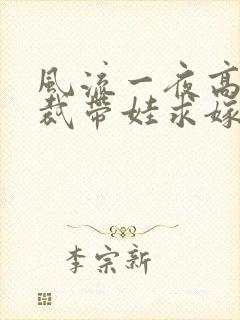 风流一夜高
裁带娃求嫁
李宗新